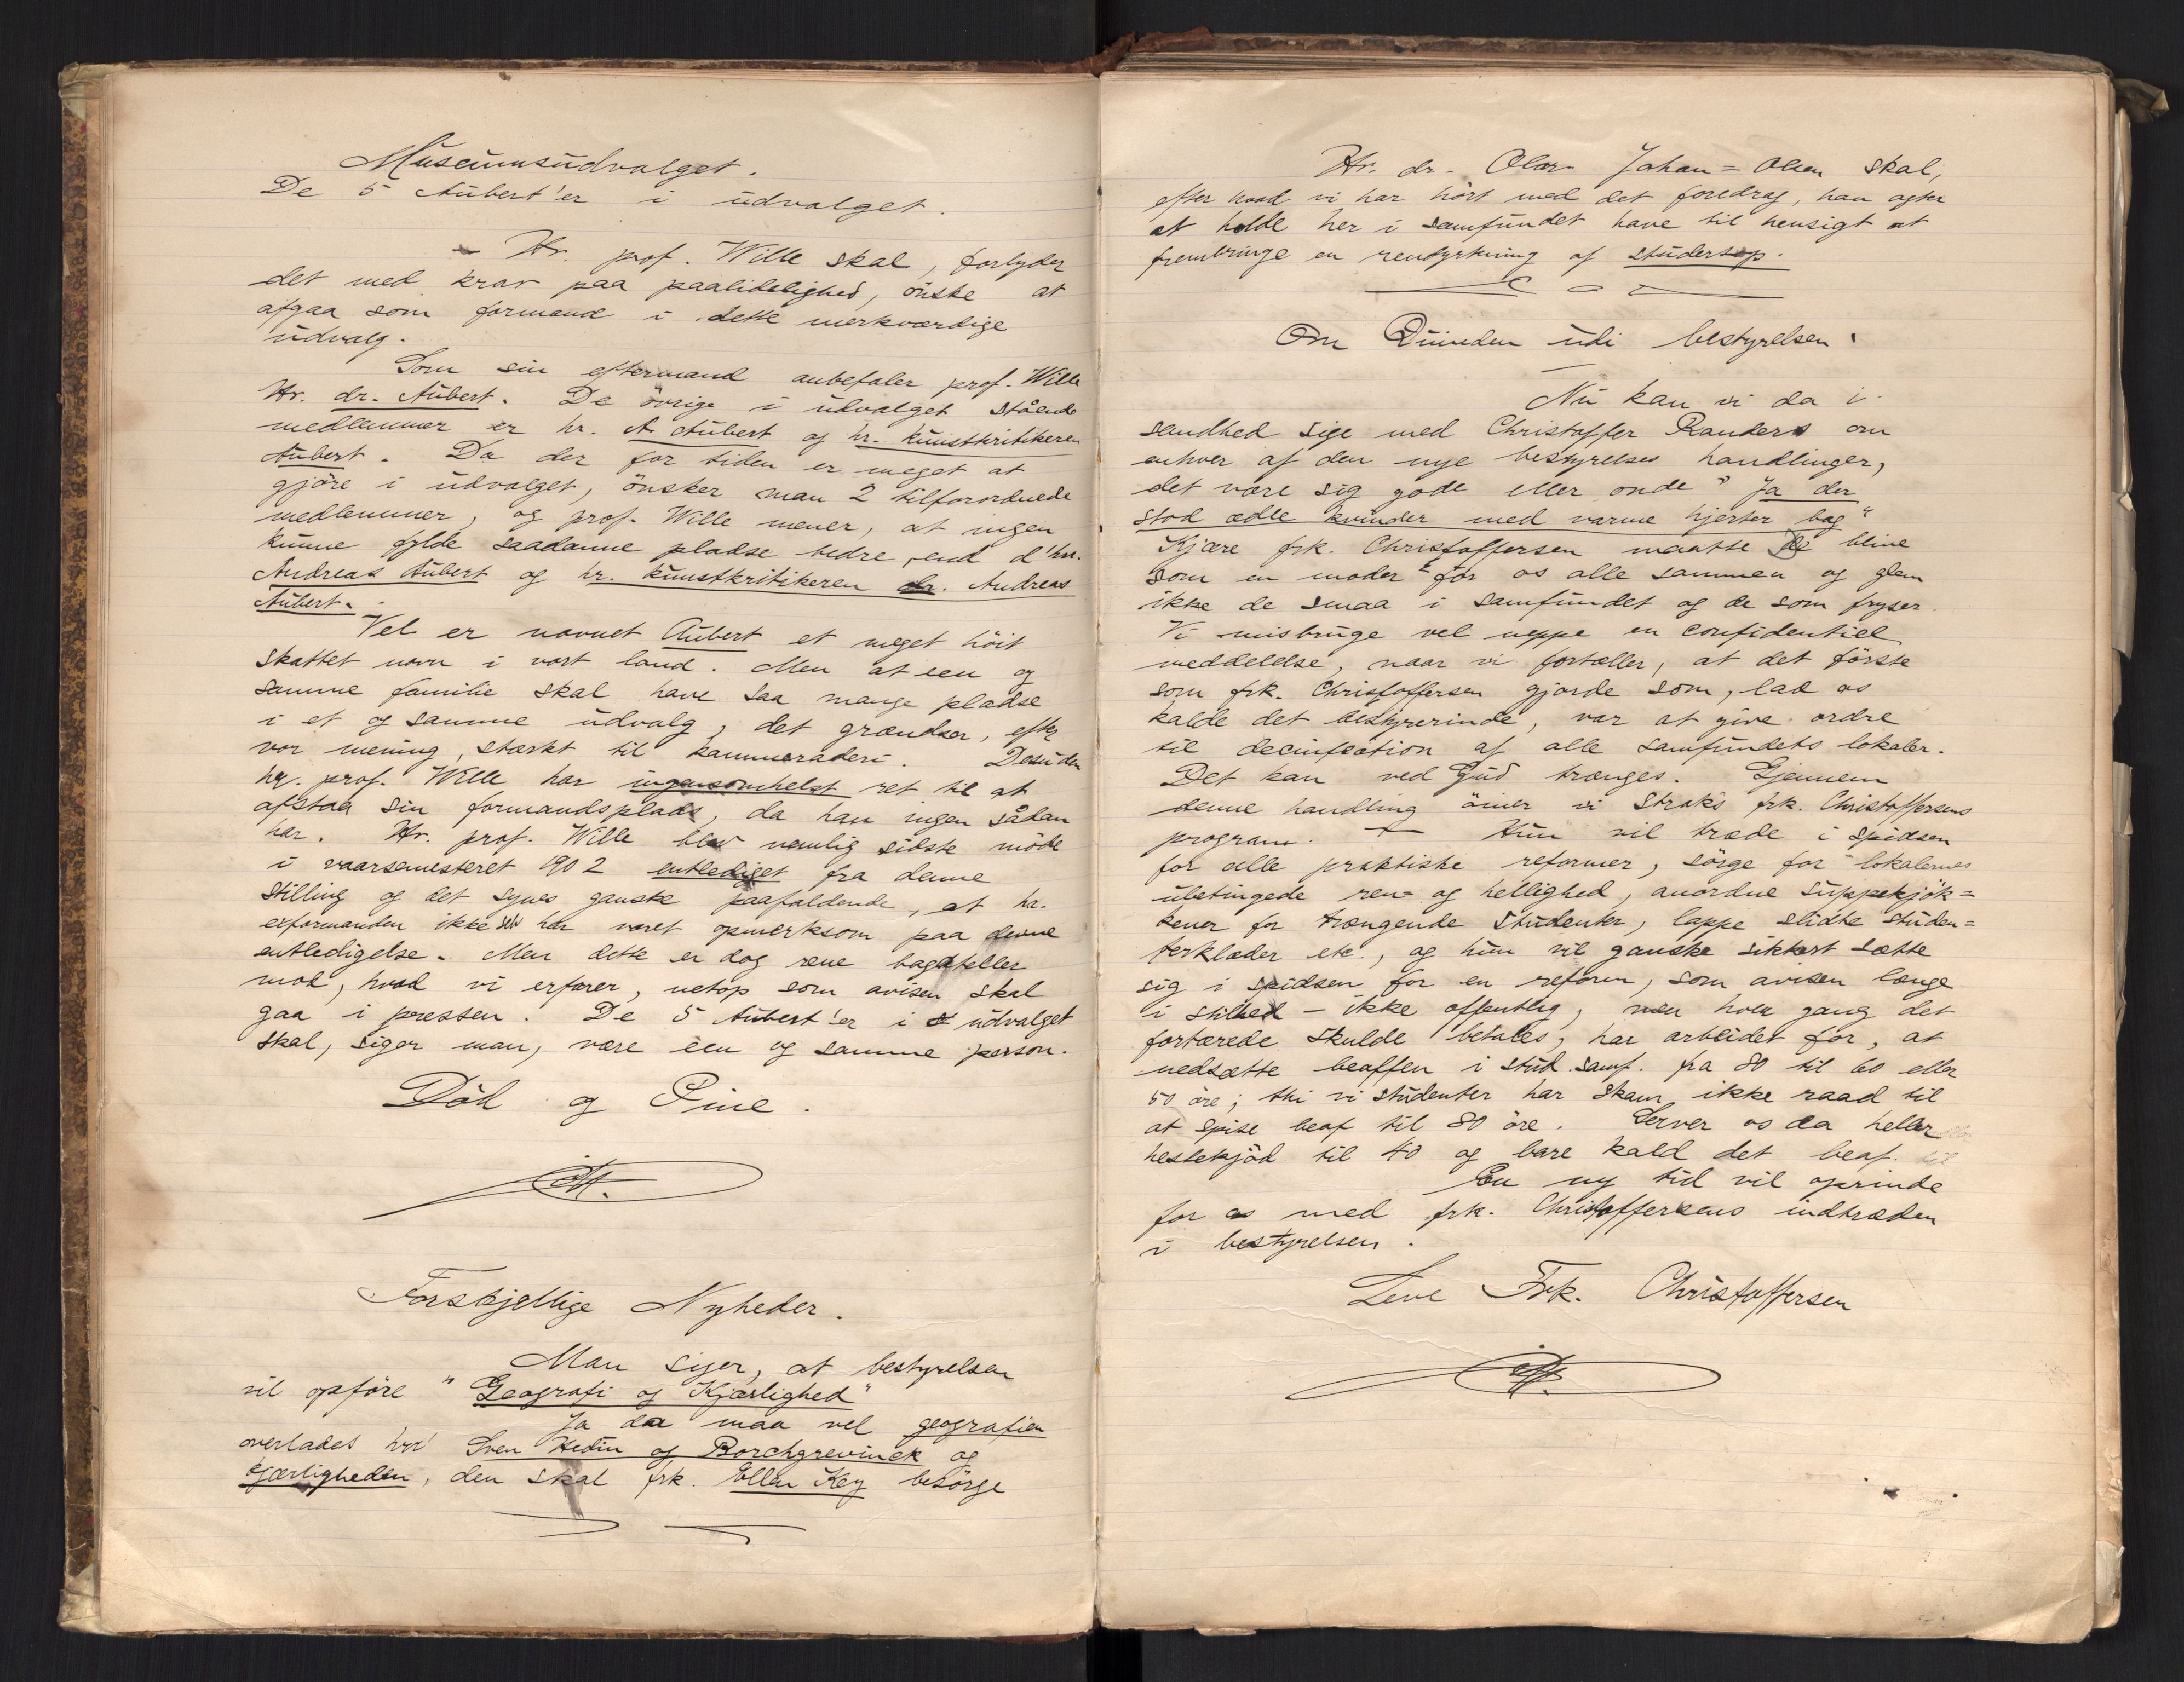 Museumsudvalget.
De 5 Aubert'er i udvalget.
Hr. prof. Wille skal, forlyder
det med krav paa paalidelighed, önske at
afgaa som formand i dette merkværdige
udvalg.
Som sin eftermand anbefaler prof. Wille
Hr. dr. Aubert. De övrige i udvalget stående
medlemmer er hr. A. Aubert og hr. kunstkritikeren
Aubert. Da der for tiden er meget at
gjöre i udvalget, önsker man 2 tilforordnede
medlemmer, og prof. Wille mener, at ingen
kunne fylde saadanne pladse bedre, end d'hrr.
Andreas Aubert og hr. kunstkritikeren dr. Andreas
Aubert.
Vel er navnet Aubert et meget höit
skattet navn i vort land. Men at een og
samme familie skal have saa mange pladse
i et og samme udvalg, det grændser, efter
vor mening, stærkt til kammeraderi. Desuden
hr. prof. Wille har ingensomhelst ret til at
afstaa sin formandsplads, da han ingen sådan
har. Hr. prof. Wille blev nemlig sidste möde
i vaarsemesteret 1902 entlediget fra denne
stilling og det synes ganske paafaldende, at hr.
exformanden ikke selv har været opmerksom paa denne
entledigelse. Men dette er dog rene bagateller
mod, hvad vi erfarer, netop som avisen skal
gaa i pressen. De 5 Aubert'er i udvalget
skal, siger man, være een og samme person.
Död og Pine.
Forskjellige Nyheder.
Man siger, at bestyrelsen
vil opföre "Geografi og Kjærlighed"
Ja da maa vel geografien
overlades hrr Sven Hedin og Borchgrevinck og
kjærligheden, den skal frk. Ellen Key besörge
Hr. dr. Olav Johan=Olsen skal,
efter hvad vi har hört med det foredrag, han agter
at holde her i samfundet have til hensigt at
frembringe en rendyrkning af studersop.
Om Quinden udi bestyrelsen.
Nu kan vi da i
sandhed sige med Christoffer Randers om
enhver af den nye bestyrelses handlinger,
det være sig gode eller onde "Ja der
stod ædle kvinder med varme hjerter bag"
Kjære frk. Christoffersen maatte De blive
som en moder for os alle sammen og glem
ikke de smaa i samfundet og de som fryser.
Vi misbruge vel neppe en confidentiel
meddelelse, naar vi fortæller, at det förste
som frk. Christoffersen gjorde som, lad os
kalde det bestyrerinde, var at give ordre
til decinfection af alle samfundets lokaler.
Det kan ved Gud trænges. Gjennem
denne handling öiner vi straks frk. Christoffersens
program. — Hun vil træde i spidsen
for alle praktiske reformer, sörge for lokalernes
ubetingede ren- og hellighed, anordne suppekjök=
kener for trængende studenter, lappe slidte studen=
terklæder etc., og hun vil ganske sikkert sætte
sig i spidsen for en reform, som avisen længe
i stilhed – ikke offentlig, men hver gang det
fortærede skulde betales, har arbeidet for, at
nedsætte beaffen i stud. samf. fra 80 til 60 eller
50 öre; thi vi studenter har skam ikke raad til
at spise beaf til 80 öre. Server os da heller
hestekjöd til 40 og bare kald det beaf.
En ny tid vil oprinde
for os med frk. Christoffersens indtræden
i bestyrelsen.
Leve Frk. Christoffersen